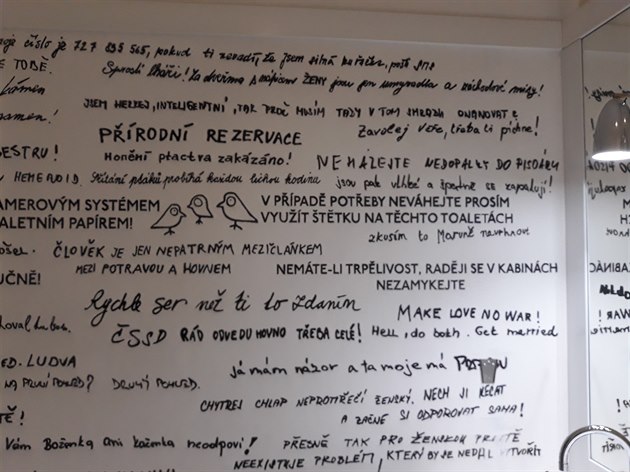 moje číslo je 727 895 565, pokud ti nevadí, že jsem silná kuřačka, pošli SMS
E TOBĚ.
Sprostí lháři! Za dveřma s nápisem ŽENY jsou jen umyvadla a záchodové mísy!
JSEM HEZKEJ, INTELIGENTNÍ, TAK PROČ MUSÍM TADY V TOM SMRADU ONANOVAT?
PŘÍRODNÍ REZERVACE
Zavolej Věře, třeba ti píchne!
ESTRU!
Honění ptactva zakázáno!
NEHÁZEJTE NEDOPALKY DO PISOÁRU
HEMEROID.
Střídání ptáků probíhá každou lichou hodinu
jsou pak vlhké a špatně se zapalují!
AMEROVÝM SYSTÉMEM
ALETNÍM PAPÍREM!
V PŘÍPADĚ POTŘEBY NEVÁHEJTE PROSÍM
VYUŽÍT ŠTĚTKU NA TĚCHTO TOALETÁCH
zkusím to Maruně navrhnout
ošel.
ČLOVĚK JE JEN NEPATRNÝM MEZIČLÁNKEM
MEZI POTRAVOU A HOVNEM
UČNĚ!
NEMÁTE-LI TRPĚLIVOST, RADĚJI SE V KABINÁCH
NEZAMYKEJTE
Rychle ser než ti to zdaním
MAKE LOVE NO WAR!
ČSSD RÁD ODVEDU HOVNO TŘEBA CELÉ!
Hell, do both. Get married
ED. LUDVA
Já mám názor a ta moje má
NA PRVNÍ POHLED? DRUHÝ POHLED.
CHYTREJ CHLAP NEPROTŘEČÍ ŽENSKÝ. NECH JI KECAT
A ZAČNE SI ODPOROVAT SAMA!
TĚ!
Vám Boženka ani kaženka neodpoví!
PŘESNĚ TAK PRO ŽENSKOU PROSTĚ
NEEXISTUJE PROBLÉM, KTERÝ BY SE NEDAL VYTVOŘIT